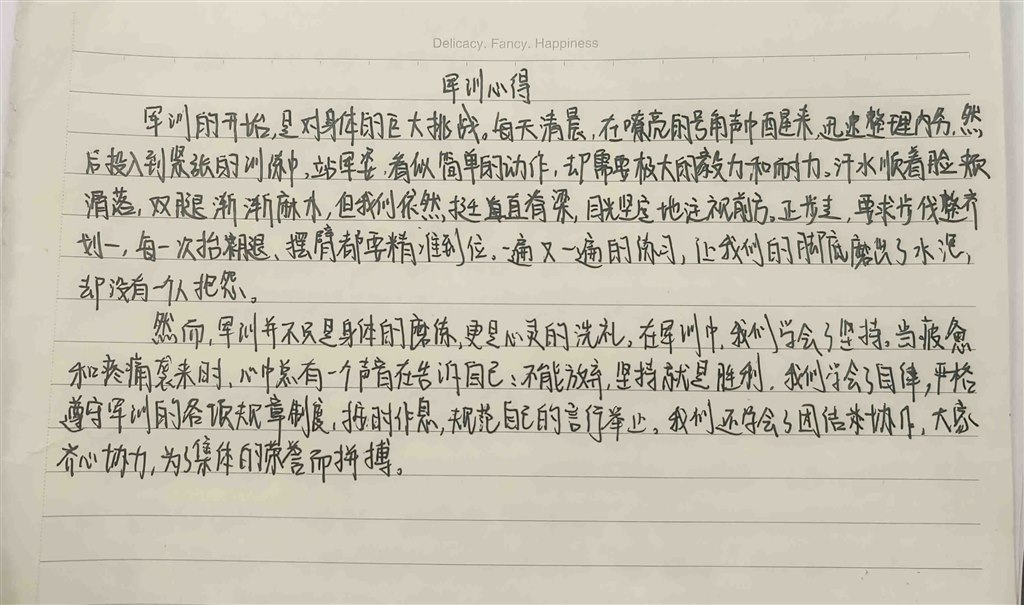 Delicacy. Fancy. Happiness
军训心得
军训的开始,是对身体的巨大挑战。每天清晨,在嘹亮的号角声中醒来,迅速整理内务,然
后投入到紧张的训练中。站军姿,看似简单的动作,却需要极大的毅力和耐力。汗水顺着脸颊
滑落,双腿渐渐麻木,但我们依然挺直脊梁,目光坚定地注视前方。正步走,要求步伐整齐
划一,每一次抬腿、摆臂都要精准到位。一遍又一遍的练习,让我们的脚底磨出了水泡,
却没有一个人抱怨。
然而,军训并不只是身体的磨练,更是心灵的洗礼。在军训中,我们学会了坚持。当疲惫
和疼痛袭来时,心中总有一个声音在告诉自己:不能放弃,坚持就是胜利。我们学会了自律,严格
遵守军训的各项规章制度,按时作息,规范自己的言行举止。我们还学会了团结协作,大家
齐心协力,为了集体的荣誉而拼搏。